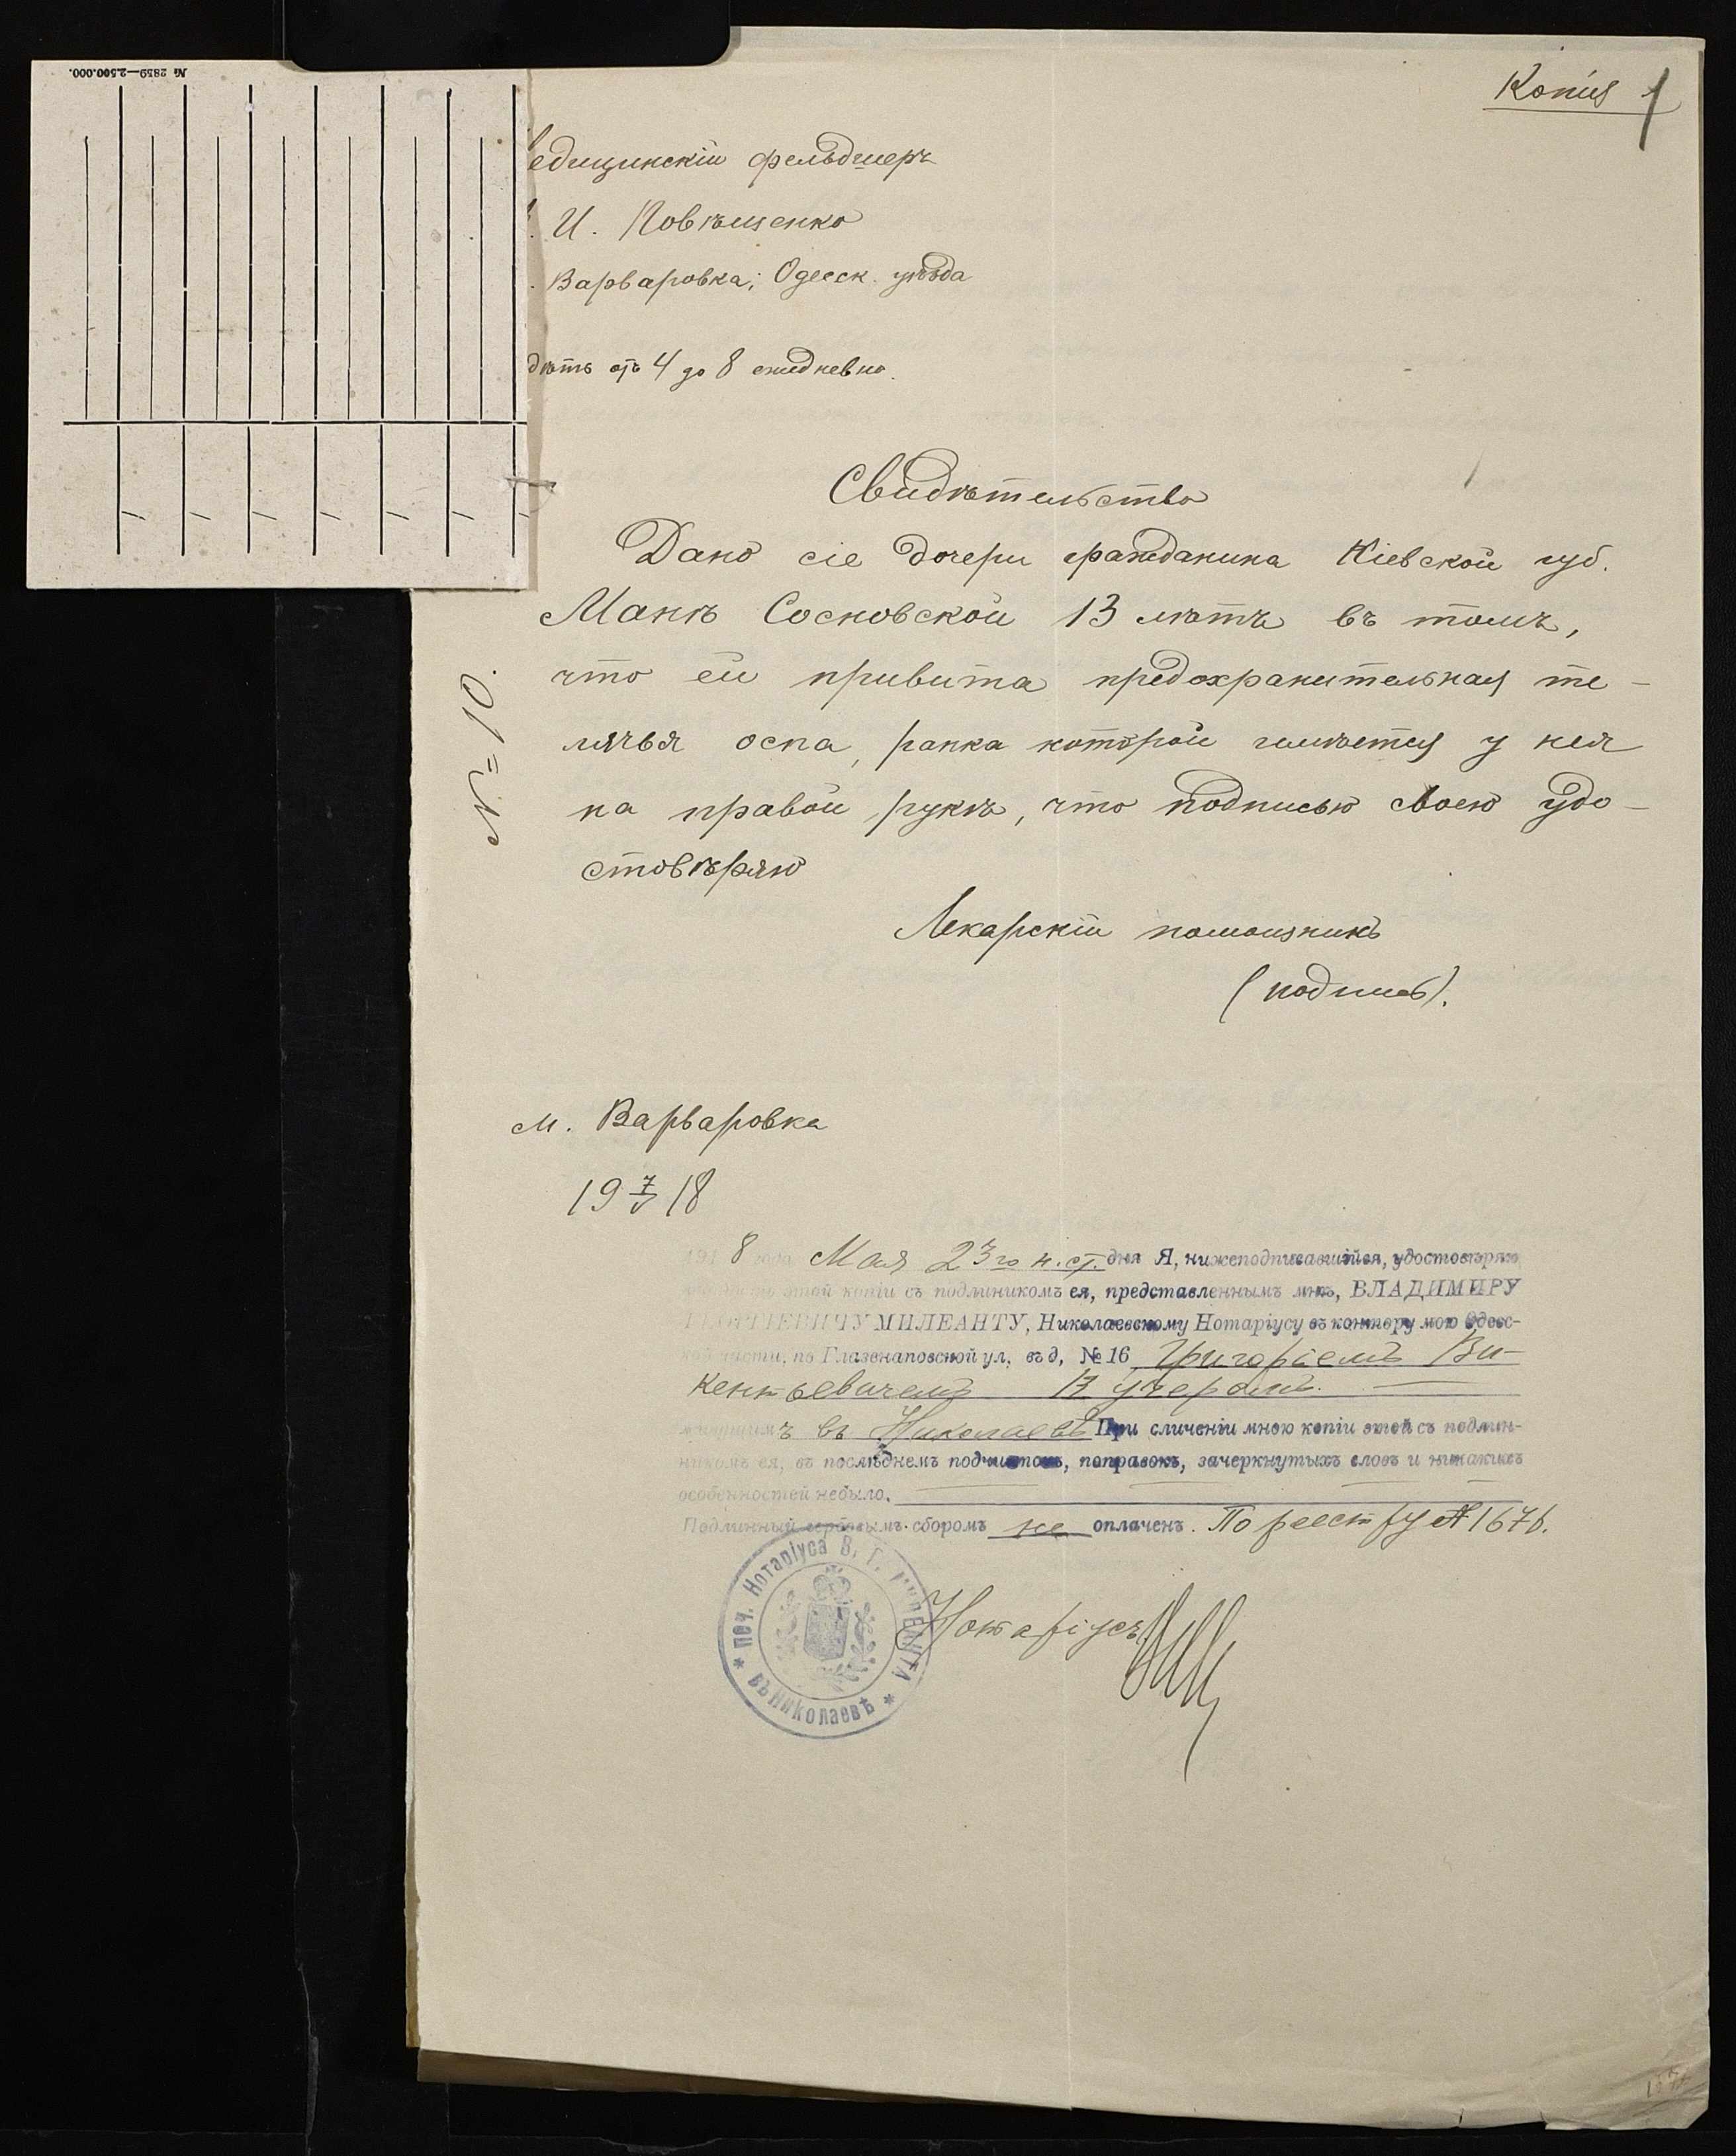 № 2859—2.500.000.
Копія 1
едицинскій фельдшеръ
И. Повѣщенко
Варваровка, Одесск. уѣзда
дѣть отъ 4 до 8 ежедневно.
Свидѣтельство
Дано сіе дочери гражданина Кіевской губ.
Манѣ Сосновской 13 лѣтъ въ томъ,
что ей привита предохранительная те-
лячья оспа, ранка которой имѣется у нея
на правой рукѣ, что подписью своею удо-
стовѣряю
№ 10.
Лекарскій помощникъ
(подпись).
м. Варваровка
19 7/V 18
191 8 года Мая 23го н. ст. дня Я, нижеподписавшійся, удостовѣряю
этой копіи съ подлиникомъ ея, представленнымъ мнѣ, ВЛАДИМИРУ
ГЕОРГІЕВИЧУ МИЛЕАНТУ, Николаевскому Нотаріусу въ контору мою Одесс-
кой части, по Глазенаповской ул, въ д, № 16 Григоріемъ Ви-
кентьевичемъ
въ Николаевѣ При сличеніи мною копіи этой съ подлин-
никомъ ея, въ послѣднемъ подчистокъ, поправокъ, зачеркнутыхъ словъ и никакихъ
особенностей небыло.
Подлинный гербовымъ сборомъ не оплаченъ. По реестру № 1676.
Нотаріусъ
* Печ. Нотаріуса В. Г. Милеанта * въ Николаевѣ